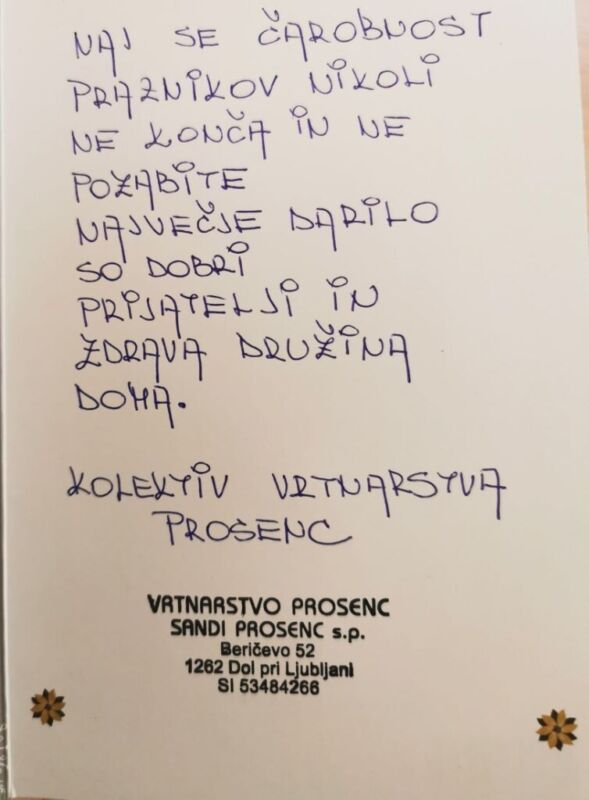 NAJ SE ČAROBNOST
PRAZNIKOV NIKOLI
NE KONČA IN NE
POZABITE
NAJVEČJE DARILO
SO DOBRI
PRIJATELJI IN
ZDRAVA DRUŽINA
DOMA.
KOLEKTIV VRTNARSTVA
PROSENC
VRTNARSTVO PROSENC
SANDI PROSENC s.p.
Beričevo 52
1262 Dol pri Ljubljani
SI 53484266